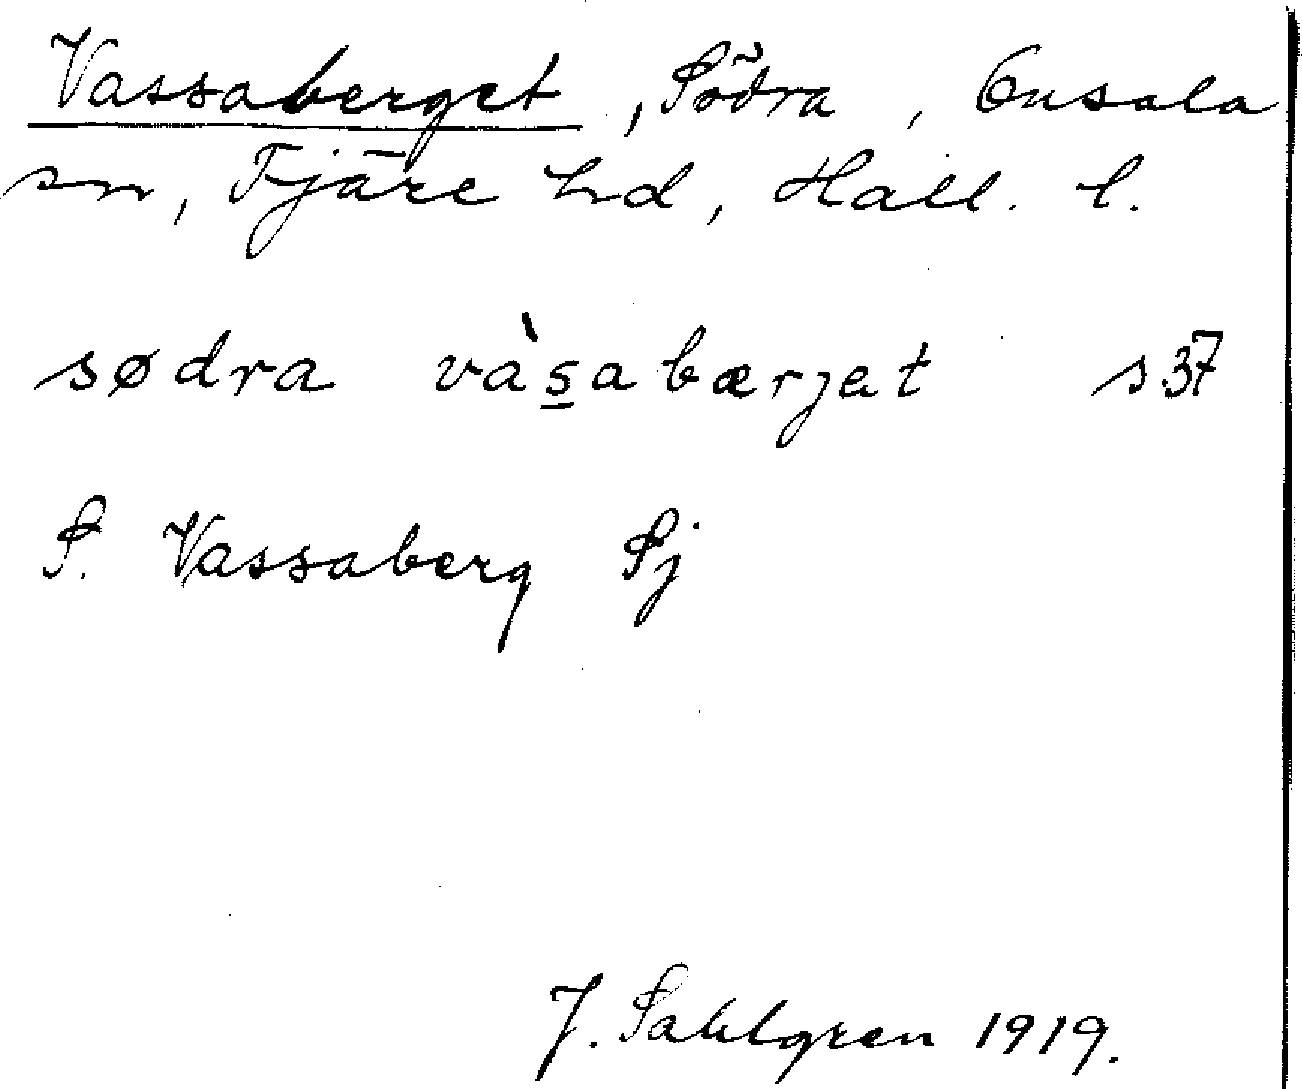 Vassaberget, Södra, Onsala
sn, Fjäre hd, Hall. l.
sødra và̖s̲abærjat s37
S. Vassaberg Sj
J. Sahlgren 1919.